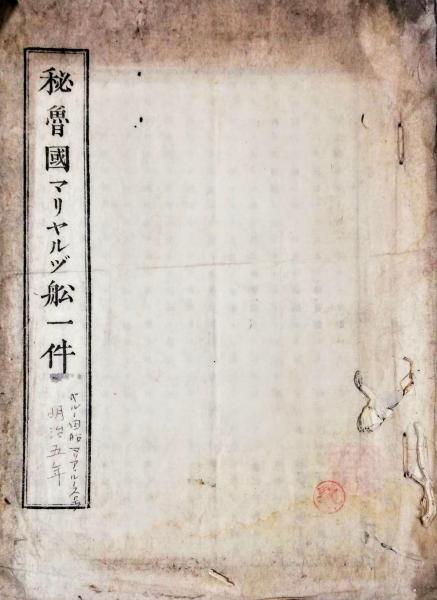 秘魯國マリヤルヅ舩一件
ペルー国船マリア・ルース号
明治五年